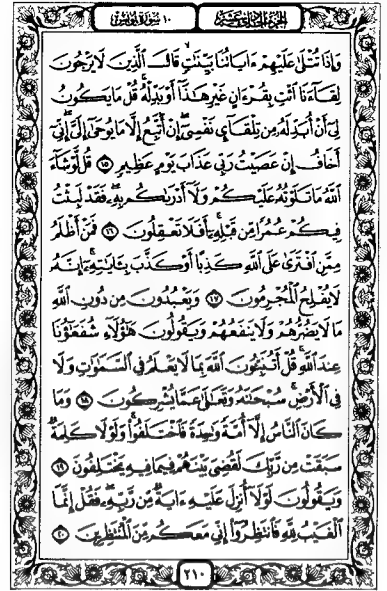 الجزء الحادي عشر
١٠ سورة يونس
وَإِذَا تُتْلَىٰ عَلَيْهِمْ ءَايَاتُنَا بَيِّنَٰتٍ قَالَ ٱلَّذِينَ لَا يَرْجُونَ
لِقَآءَنَا ٱئْتِ بِقُرْءَانٍ غَيْرِ هَٰذَآ أَوْ بَدِّلْهُ ۚ قُلْ مَا يَكُونُ
لِىٓ أَنْ أُبَدِّلَهُۥ مِن تِلْقَآئِ نَفْسِىٓ ۖ إِنْ أَتَّبِعُ إِلَّا مَا يُوحَىٰٓ إِلَىَّ ۖ إِنِّىٓ
أَخَافُ إِنْ عَصَيْتُ رَبِّى عَذَابَ يَوْمٍ عَظِيمٍ ۝١٥ قُل لَّوْ شَآءَ
ٱللَّهُ مَا تَلَوْتُهُۥ عَلَيْكُمْ وَلَآ أَدْرَىٰكُم بِهِۦ ۖ فَقَدْ لَبِثْتُ
فِيكُمْ عُمُرًا مِّن قَبْلِهِۦٓ ۚ أَفَلَا تَعْقِلُونَ ۝١٦ فَمَنْ أَظْلَمُ
مِمَّنِ ٱفْتَرَىٰ عَلَى ٱللَّهِ كَذِبًا أَوْ كَذَّبَ بِـَٔايَٰتِهِۦٓ ۚ إِنَّهُۥ
لَا يُفْلِحُ ٱلْمُجْرِمُونَ ۝١٧ وَيَعْبُدُونَ مِن دُونِ ٱللَّهِ
مَا لَا يَضُرُّهُمْ وَلَا يَنفَعُهُمْ وَيَقُولُونَ هَٰٓؤُلَآءِ شُفَعَٰٓؤُنَا
عِندَ ٱللَّهِ ۚ قُلْ أَتُنَبِّـُٔونَ ٱللَّهَ بِمَا لَا يَعْلَمُ فِى ٱلسَّمَٰوَٰتِ وَلَا
فِى ٱلْأَرْضِ ۚ سُبْحَٰنَهُۥ وَتَعَٰلَىٰ عَمَّا يُشْرِكُونَ ۝١٨ وَمَا
كَانَ ٱلنَّاسُ إِلَّآ أُمَّةً وَٰحِدَةً فَٱخْتَلَفُوا۟ ۚ وَلَوْلَا كَلِمَةٌ
سَبَقَتْ مِن رَّبِّكَ لَقُضِىَ بَيْنَهُمْ فِيمَا فِيهِ يَخْتَلِفُونَ ۝١٩
وَيَقُولُونَ لَوْلَآ أُنزِلَ عَلَيْهِ ءَايَةٌ مِّن رَّبِّهِۦ ۖ فَقُلْ إِنَّمَا
ٱلْغَيْبُ لِلَّهِ فَٱنتَظِرُوٓا۟ إِنِّى مَعَكُم مِّنَ ٱلْمُنتَظِرِينَ ۝٢٠
٢١٠